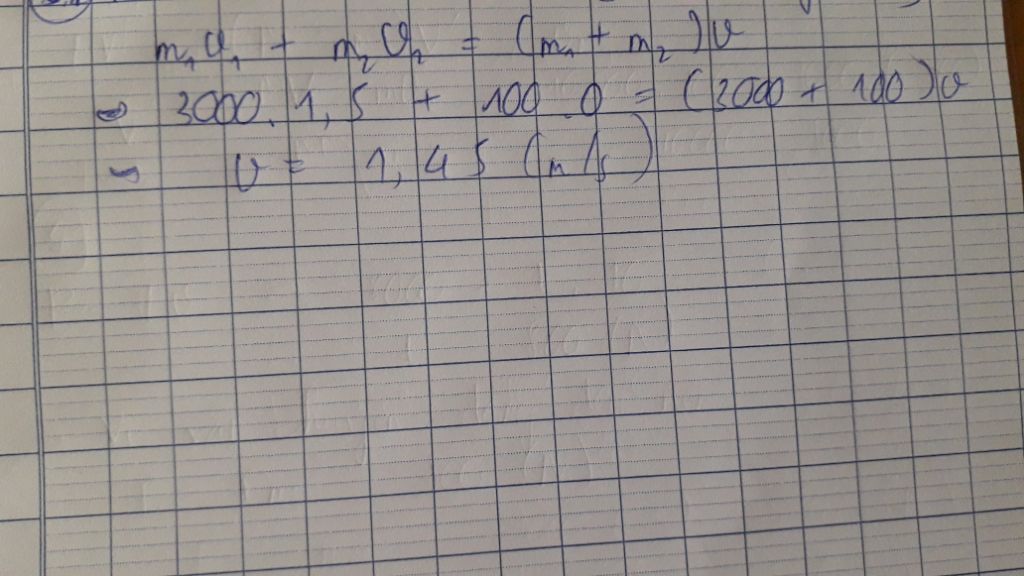 m₁v₁ + m₂v₂ = (m₁ + m₂)v
⇔ 3000.1,5 + 100.0 = (3000 + 100)v
v = 1,45 (m/s)